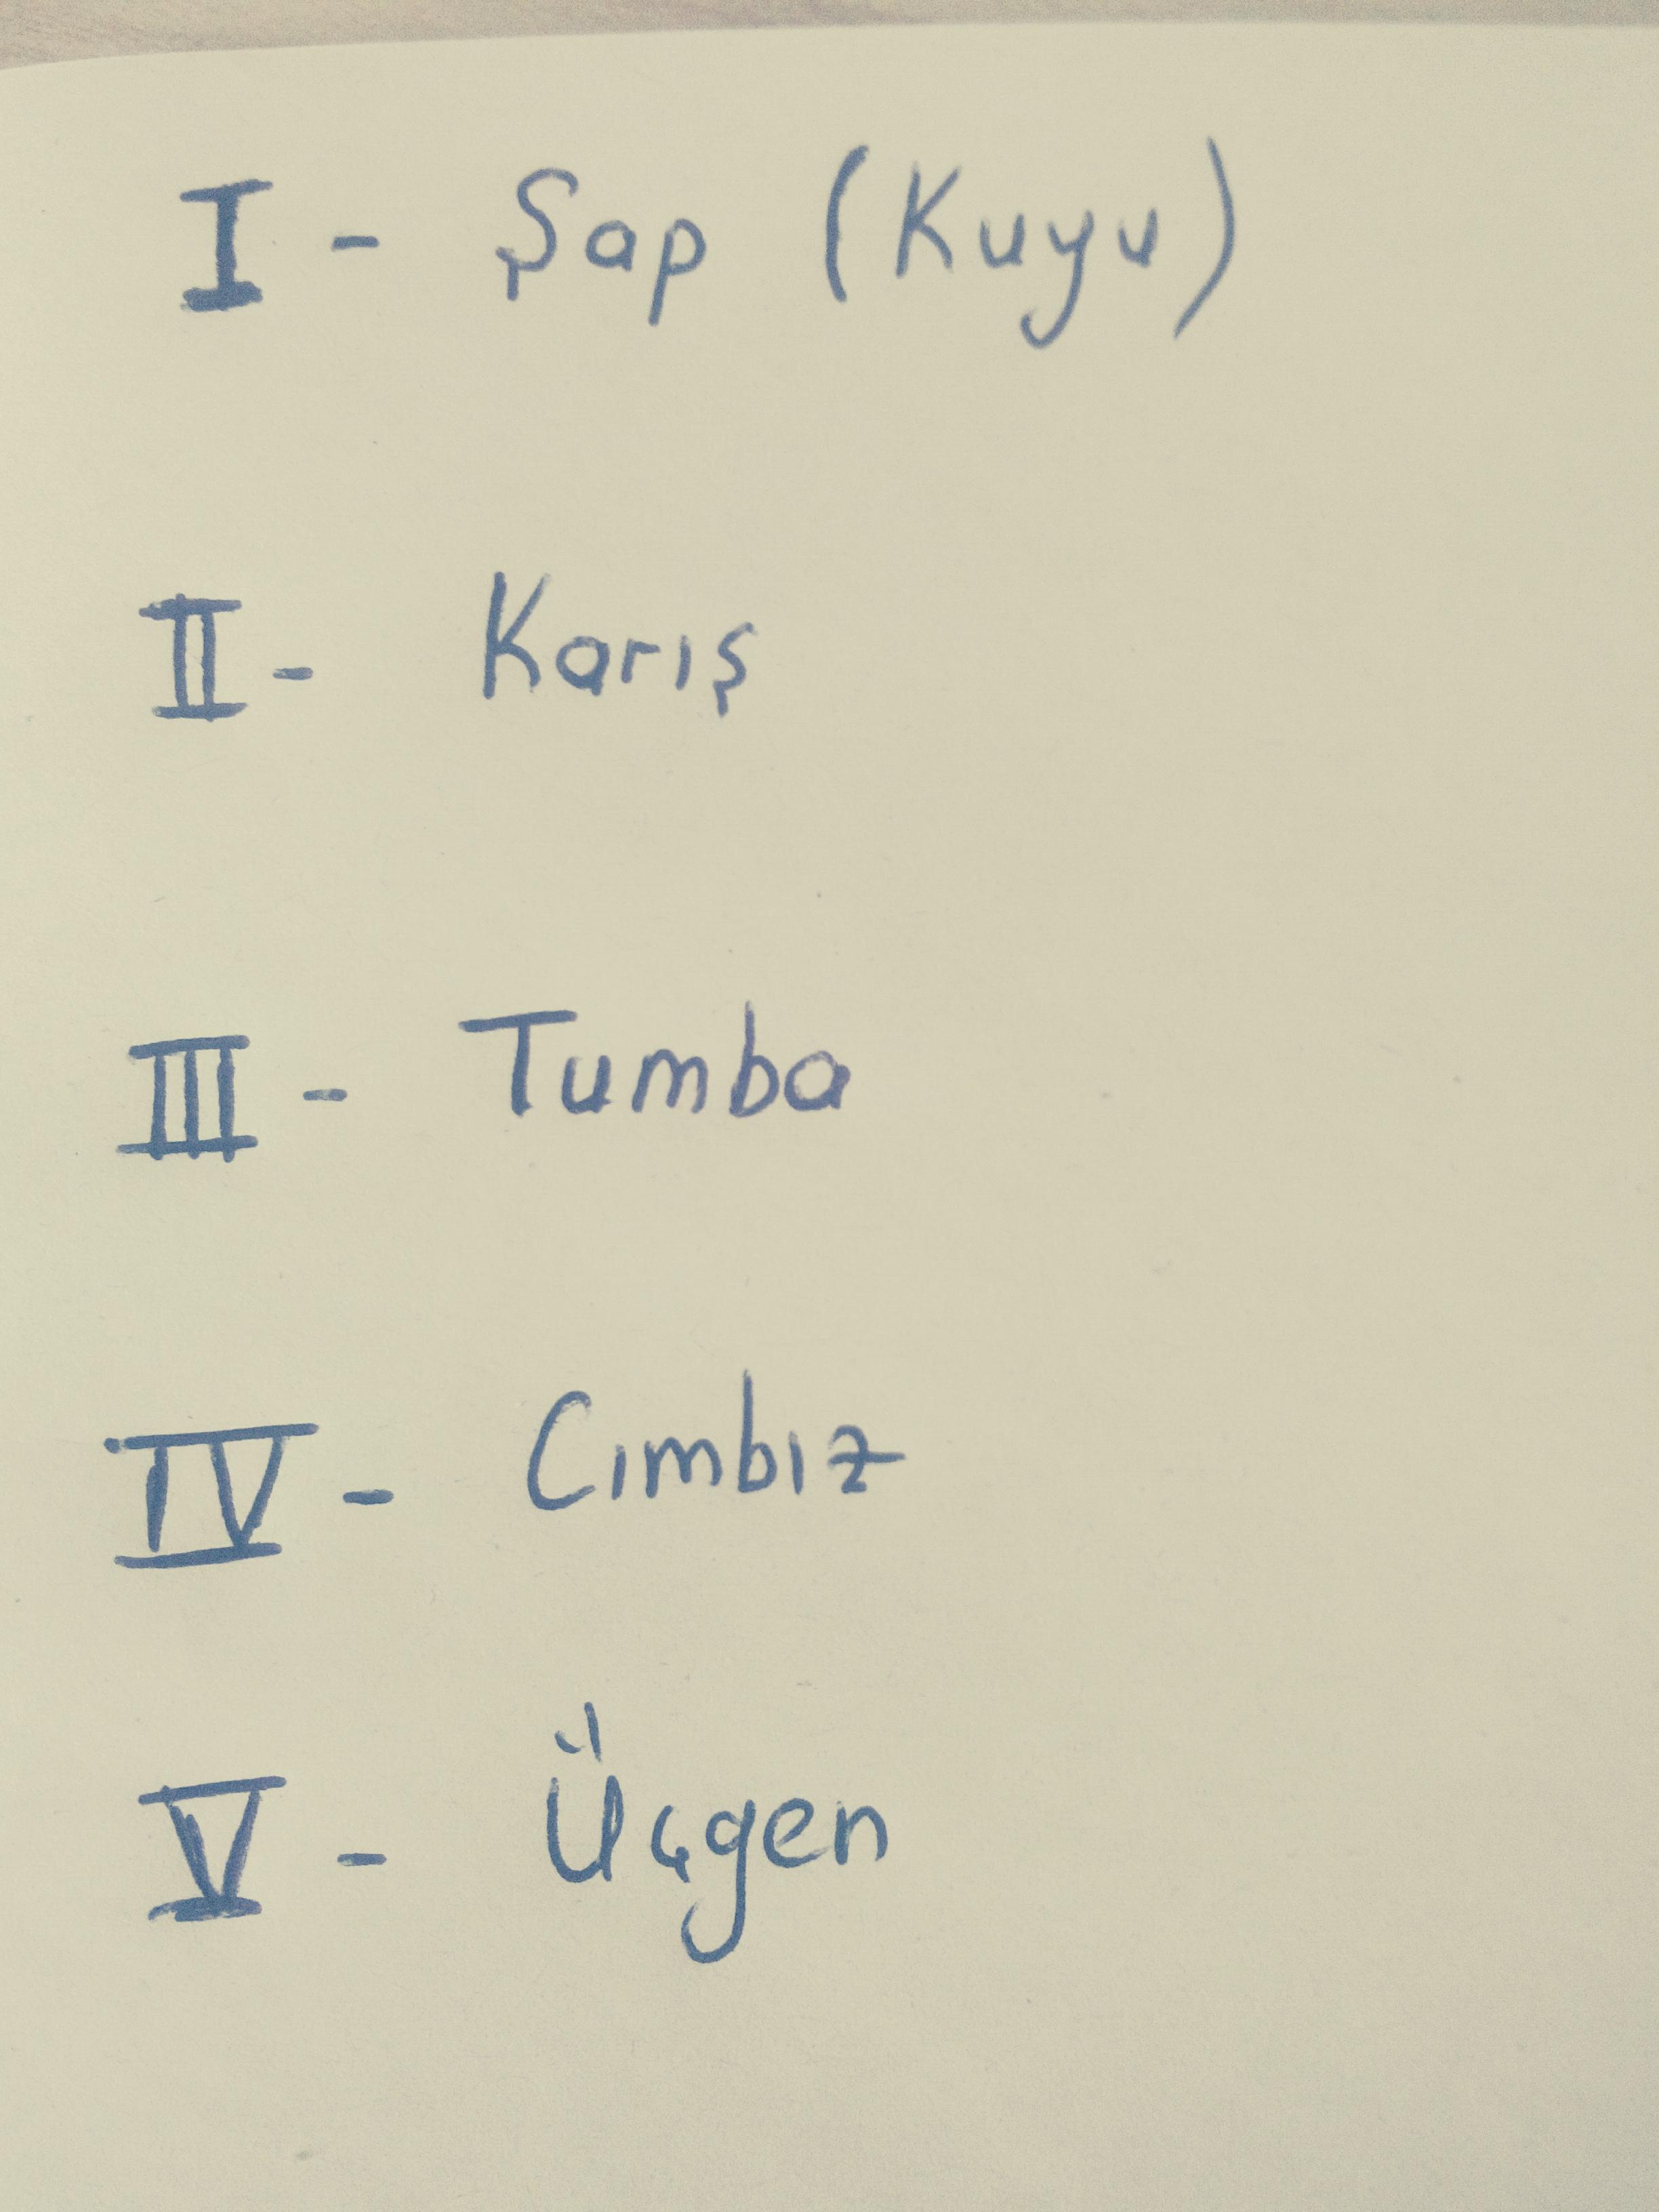 I - Şap (Kuyu)
II - Karış
III - Tumba
IV - Cımbız
V - Üçgen